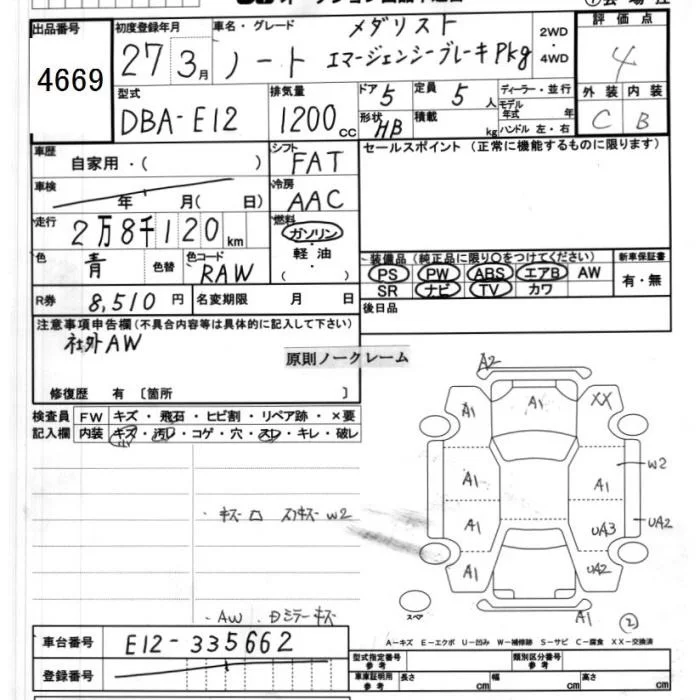 出品番号
4669
初度登録年月
27 3月
車名・グレード
ノート
メダリスト
エマージェンシーブレーキPkg
2WD
・
4WD
評価点
4
外装 内装
C B
型式
DBA-E12
排気量
1200 cc
ドア 5
定員 5 人
形状 HB
積載 kg
ディーラー・並行
モデル年式 年
ハンドル 左・右
車歴
自家用・( )
シフト
FAT
セールスポイント（正常に機能するものに限ります）
車検
年 月( 日)
冷房
AAC
走行
2万8千120 km
燃料
ガソリン
軽油
( )
色
青
色替
色コード
RAW
装備品（純正品に限り○をつけてください）
新車保証書
PS PW ABS エアB AW
有・無
SR ナビ TV カワ
R券 8,510 円
名変期限 月 日
後日品
注意事項申告欄（不具合内容等は具体的に記入して下さい）
社外AW
原則ノークレーム
修復歴 有〔箇所 〕
検査員
記入欄
FW キズ・飛石・ヒビ割・リペア跡・×要
内装 キズ・汚レ・コゲ・穴・スレ・キレ・破レ
A2
A1
A1
XX
A1
A1
W2
A1
UA3
UA2
A1
UA2
A1
2
スペア
W2
AW
A－キズ E－エクボ U－凹み W－補修跡 S－サビ C－腐食 XX－交換済
車台番号
E12-335662
登録番号
型式指定番号
参考
類別区分番号
参考
車庫証明用
参考
長さ cm
幅 cm
高さ cm